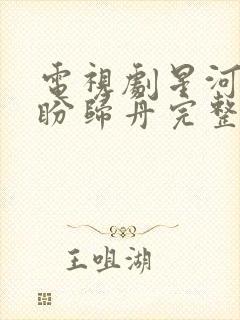 電視劇星河
盼歸丹完整
王咀湖